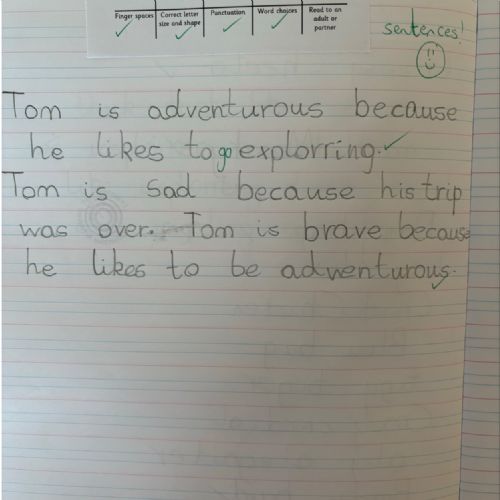 Finger spaces Correct letter size and shape Punctuation Word choices Read to an adult or partner
sentences!
Tom is adventurous because
he likes to go explorring.
Tom is sad because his trip
was over. Tom is brave because
he likes to be adventurous.